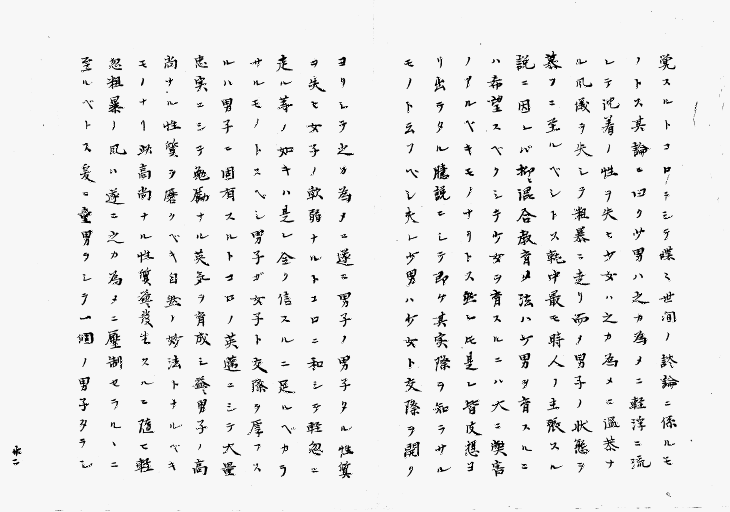 覚スルトコロニシテ喋々世間ノ談論ニ係ルモ
ノトス其論ニ曰ク少男ハ之カ為メニ軽浮ニ流
レテ沈着ノ性ヲ失ヒ少女ハ之カ為メニ温恭ナ
ル風儀ヲ失シテ粗暴ニ走リ而メ男子ノ状態ヲ
慕フニ至ルベシトス就中最モ時人ノ主張スル
説ニ因レバ抑混合教育ノ法ハ少男ヲ育スルニ
ハ希望スベクシテ少女ヲ育スルニハ大ニ弊害
ノアルベキモノナリトス然レ𪜈是レ皆皮想ヨ
リ出テタル臆説ニシテ即ケ其実際ヲ知ラサル
モノト云フベシ夫レ少男ハ少女ト交際ヲ開ク
ヨリシテ之カ為メニ遂ニ男子ノ男子タル性質
ヲ失ヒ女子ノ軟弱ナルトコロニ和シテ軽忽ニ
走ル等ノ如キハ是レ全ク信スルニ足ルベカラ
サルモノトスベシ男子ガ女子ト交際ヲ厚フス
ルハ男子ニ固有スルトコロノ英邁ニシテ大量
忠実ニシテ勉励ナル英気ヲ育成シ益男子ノ高
尚ナル性質ヲ磨クベキ自然ノ妙法トナルベキ
モノナリ此高尚ナル性質発生スルニ随ヒ軽
忽粗暴ノ風ハ遂ニ之カ為メニ圧制セラルヽニ
至ルベトス爰ニ童男ヲシテ一個ノ男子タラシ